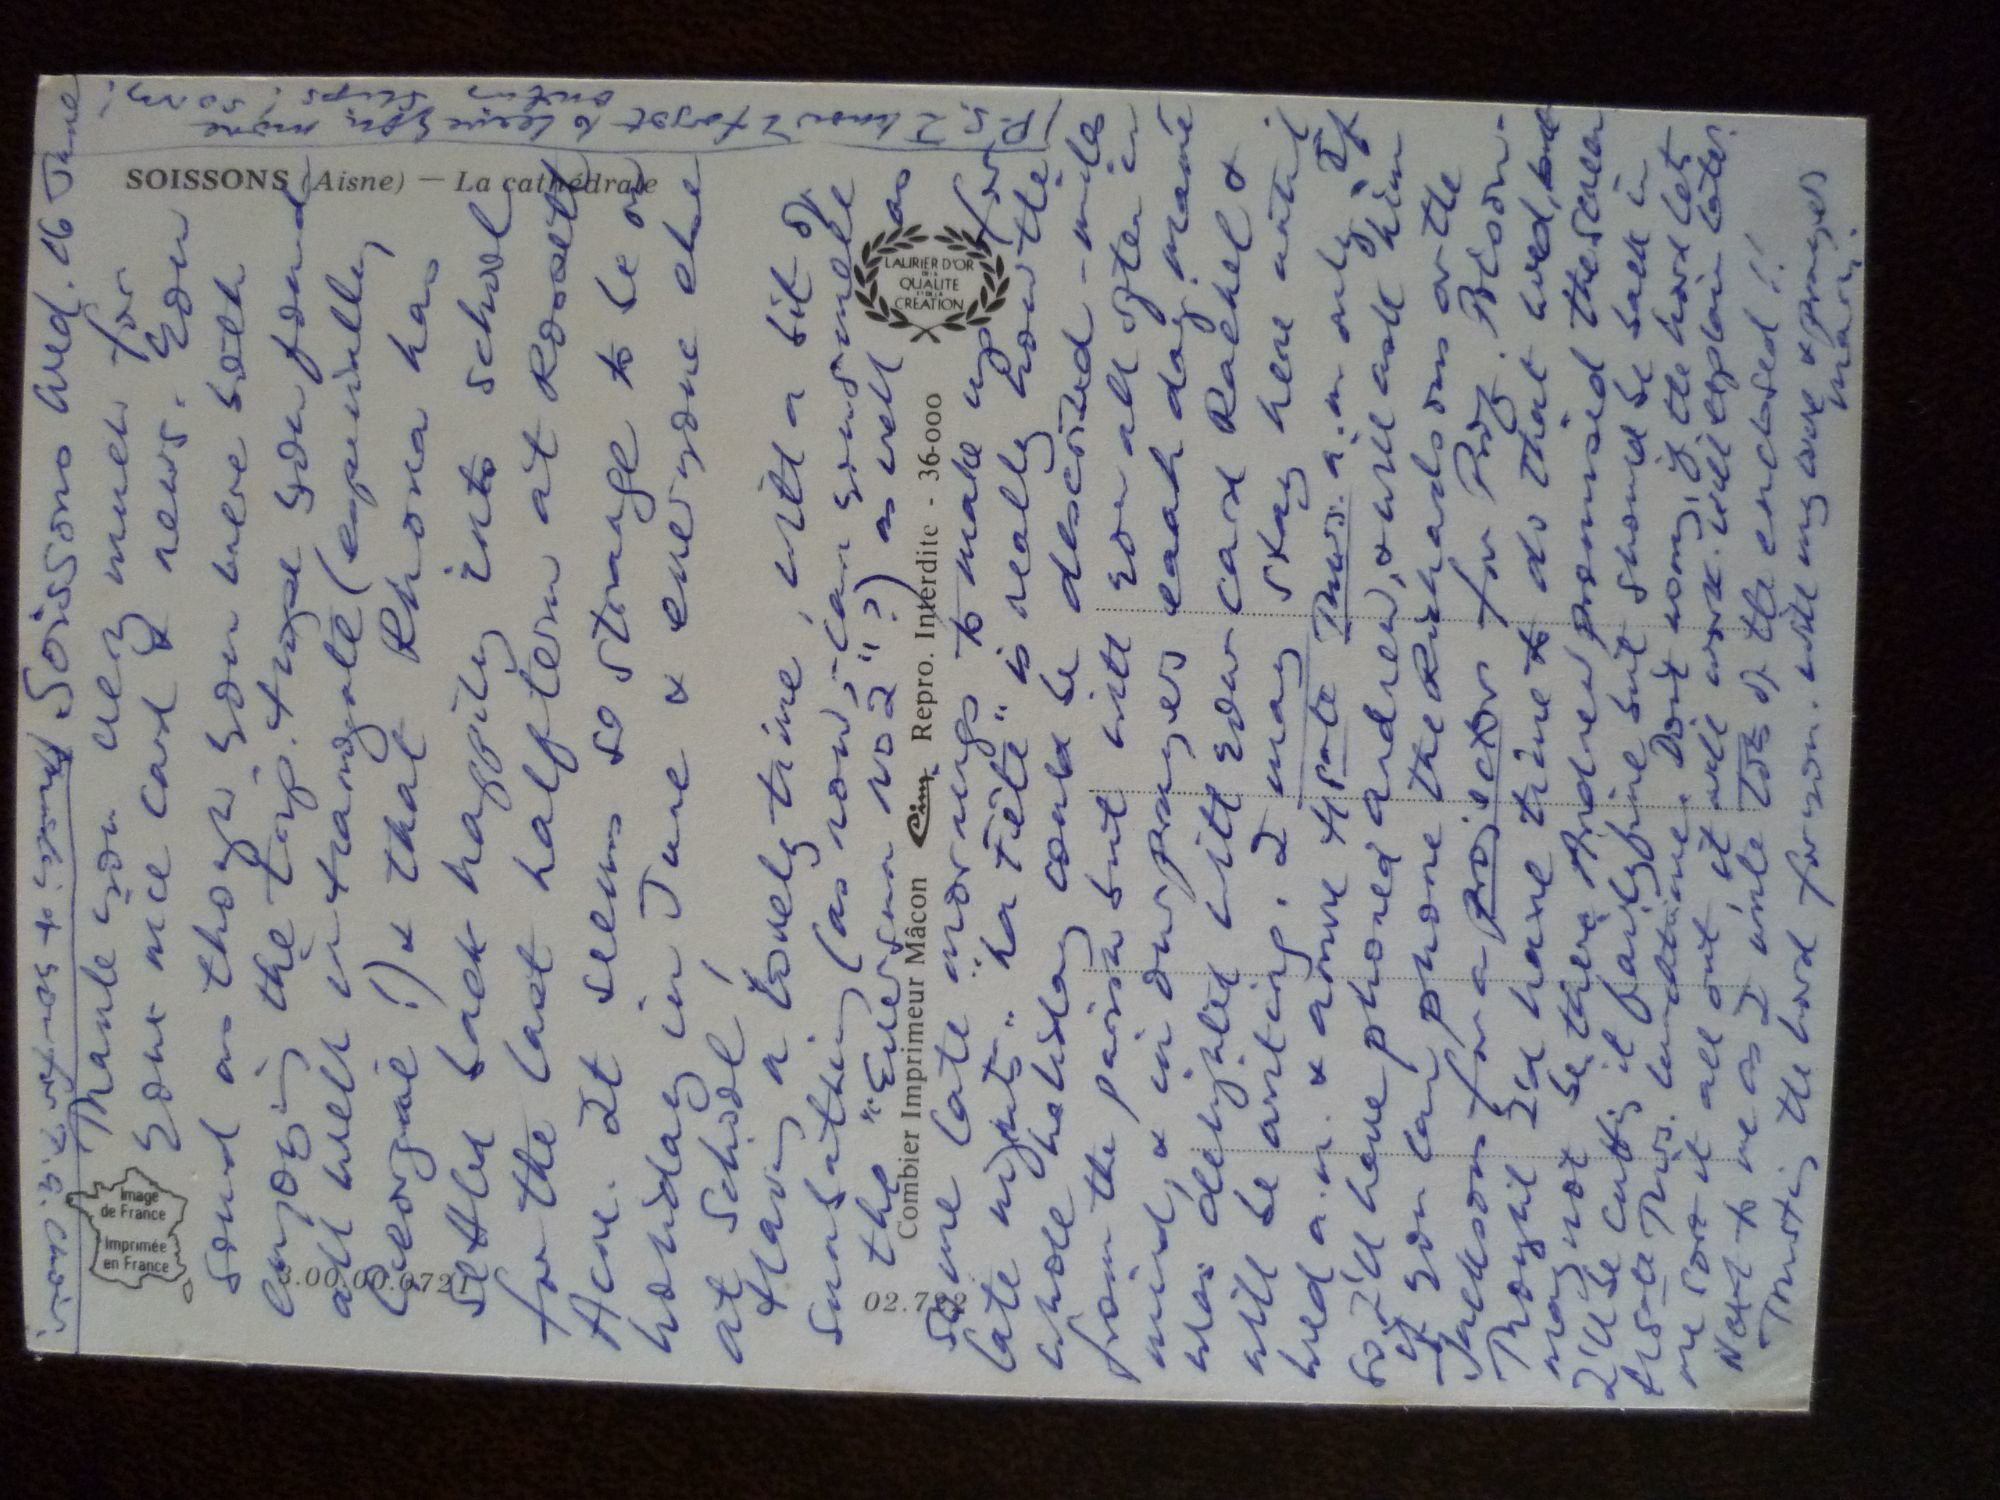 Soissons Wed. 16 June
Thank you very much for
your nice card & news. You
sound as though you were both
enjoying the trip. I hope you found
all well in transgate (especially
Georgie!) & that Rhona has
settled back happily into school
for the last half term at Roosett
Acre. It seems so strange to be on
holiday in June & everyone else
at school!
Having a lovely time, with a bit of
sunbathing (as now, - can you smell
the "Eversun no 2"?) as well as
some late mornings to make up for
late nights. "La Fête" is really how the
whole holiday could be described - miles
from the parish but with you all often in
mind, & in our prayers each day. Mamé
was delighted with your card Rachel &
will be writing. I may stay here until
Wed a.m. & arrive Hpool Thurs. a.m. only. If
so I'll have phoned Andrew, & will ask him
if you can phone the Richardsons or the
Jacksons for a projector for Fri.
Thought I'd have time to do that Wed, but
may not be there. Andrew promised the screen
I'll be cutting it fairly fine but should be back in
Thurs. lunchtime. Don't worry, if the Lord lets
me sort it all out, it will work. Will explain later.
Next to me as I write is of the enclosed!!
Trusting the Lord for you. With my love & prayers
P.S. I know I forgot to leave you more
sorry!
SOISSONS (Aisne) — La cathédrale
LAURIER D'OR
DE LA
QUALITÉ
ET DE LA
CRÉATION
Combier Imprimeur Mâcon Cim Repro. Interdite - 36-000
Image
de France
Imprimée
en France